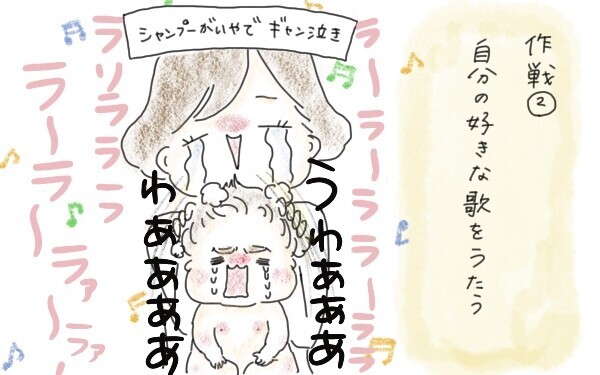 作戦②
自分の好きな歌をうたう
シャンプーがいやで ギャン泣き
ラ〜ラ〜ララ〜ララ
うわぁぁぁ
わぁぁぁぁ
ラソラララ
ラ〜ラ〜
ラァ〜ラァ〜